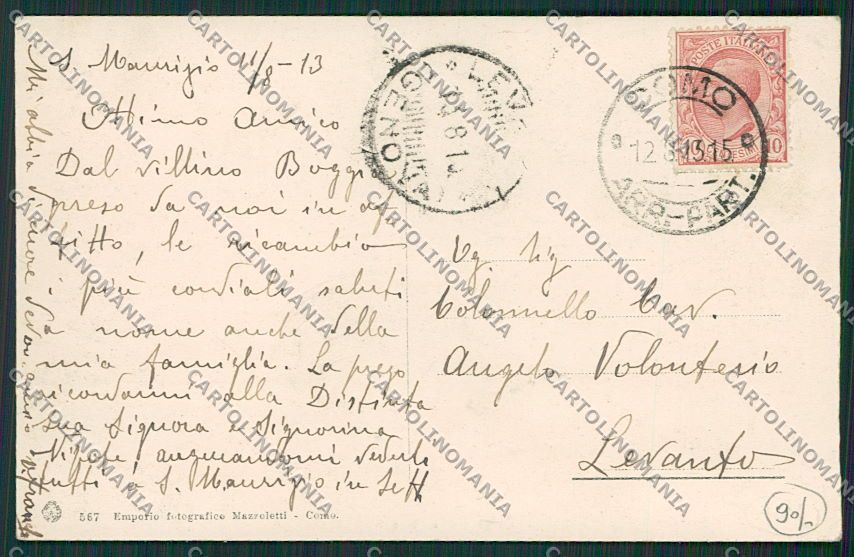 S. Maurizio 11/8-13
Ottimo Amico
Dal villino Boggi
preso da noi in af
fitto, le ricambio
i più cordiali saluti
a nome anche della
mia famiglia. La prego
ricordarmi alla Distinta
sua Signora e Signorina
Nipote augurandomi vederli
tutti a S. Maurizio in Sett
Mi abbia
Colonnello Cav.
Angelo Volonterio
Levanto
POSTE ITALIANE
10
COMO
12.8.13.15
ARR.-PART.
LEVANTO
GENOVA
567 Emporio fotografico Mazzoletti - Como.
90/-
CARTOLINOMANIA